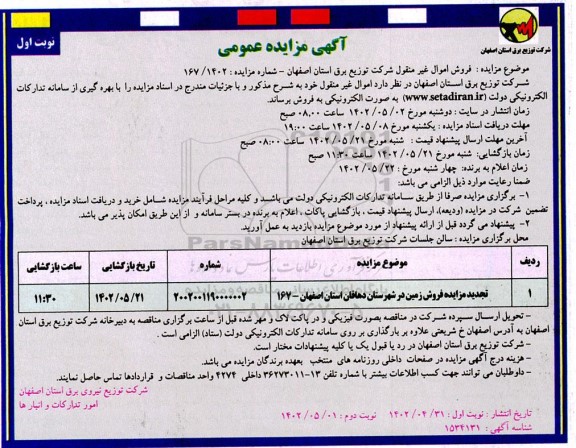 آگهی مزایده عمومی
نوبت اول
شرکت توزیع برق استان اصفهان
موضوع مزایده : فروش اموال غیر منقول شرکت توزیع برق استان اصفهان – شماره مزایده : ۱۴۰۲/ ۱۶۷
شرکت توزیع برق استان اصفهان در نظر دارد اموال غیر منقول خود به شرح مذکور و با جزئیات مندرج در اسناد مزایده را با بهره گیری از سامانه تدارکات
الکترونیکی دولت (www.setadiran.ir) به صورت الکترونیکی به فروش برساند.
زمان انتشار در سایت : دوشنبه مورخ ۱۴۰۲/۰۵/۰۲ ساعت ۰۸,۰۰ صبح
مهلت دریافت اسناد مزایده : یکشنبه مورخ ۱۴۰۲/۰۵/۰۸ ساعت ۱۹:۰۰
آخرین مهلت ارسال پیشنهاد قیمت : شنبه مورخ ۱۴۰۲/۰۵/۲۱ ساعت ۰۸:۰۰ صبح
زمان بازگشایی: شنبه مورخ ۱۴۰۲/۰۵/۲۱ ساعت ۱۱:۳۰ صبح
زمان اعلام به برنده: چهار شنبه مورخ : ۱۴۰۲/۰۵/۲۲
ضمنا رعایت موارد ذیل الزامی می باشد:
۱– برگزاری مزایده صرفا از طریق سامانه تدارکات الکترونیکی دولت می باشد و کلیه مراحل فرآیند مزایده شامل خرید و دریافت اسناد مزایده ، پرداخت
تضمین شرکت در مزایده (ودیعه)، ارسال پیشنهاد قیمت ، بازگشایی پاکات ، اعلام به برنده در بستر سامانه و از این طریق امکان پذیر می باشد.
۲– پیشنهاد می گردد قبل از ارائه پیشنهاد از مورد موضوع مزایده بازدید به عمل آورید.
محل برگزاری مزایده : سالن جلسات شرکت توزیع برق استان اصفهان
ردیف موضوع مزایده شماره تاریخ بازگشایی ساعت بازگشایی
۱ تجدید مزایده فروش زمین در شهرستان دهاقان استان اصفهان – ۱۶۷ ۲۰۰۲۰۰۱۱۹۰۰۰۰۰۰۲ ۱۴۰۲/۰۵/۲۱ ۱۱:۳۰
– تحویل ارسال سپرده شرکت در مناقصه بصورت فیزیکی و در پاکت لاک و مهر شده قبل از ساعت برگزاری مناقصه به دبیرخانه شرکت توزیع برق استان
اصفهان به آدرس اصفهان خ شریعتی علاوه بر بارگذاری بر روی سامانه تدارکات الکترونیکی دولت (ستاد) الزامی است .
– شرکت توزیع برق استان اصفهان در رد یا قبول یک یا کلیه پیشنهادات مختار است.
– هزینه درج آگهی مزایده در صفحات داخلی روزنامه های منتخب بعهده برندگان مزایده می باشد.
– داوطلبان می توانند جهت کسب اطلاعات بیشتر با شماره تلفن ۱۳–۳۶۲۷۳۰۱۱ داخلی ۴۲۷۴ واحد مناقصات و قراردادها تماس حاصل نمایند.
شرکت توزیع نیروی برق استان اصفهان
امور تدارکات و انبار ها
تاریخ انتشار : نوبت اول : ۳۱ /۰۴ /۱۴۰۲ نوبت دوم : ۰۱ /۰۵ /۱۴۰۲
شناسه آگهی : ۱۵۳۴۱۳۱